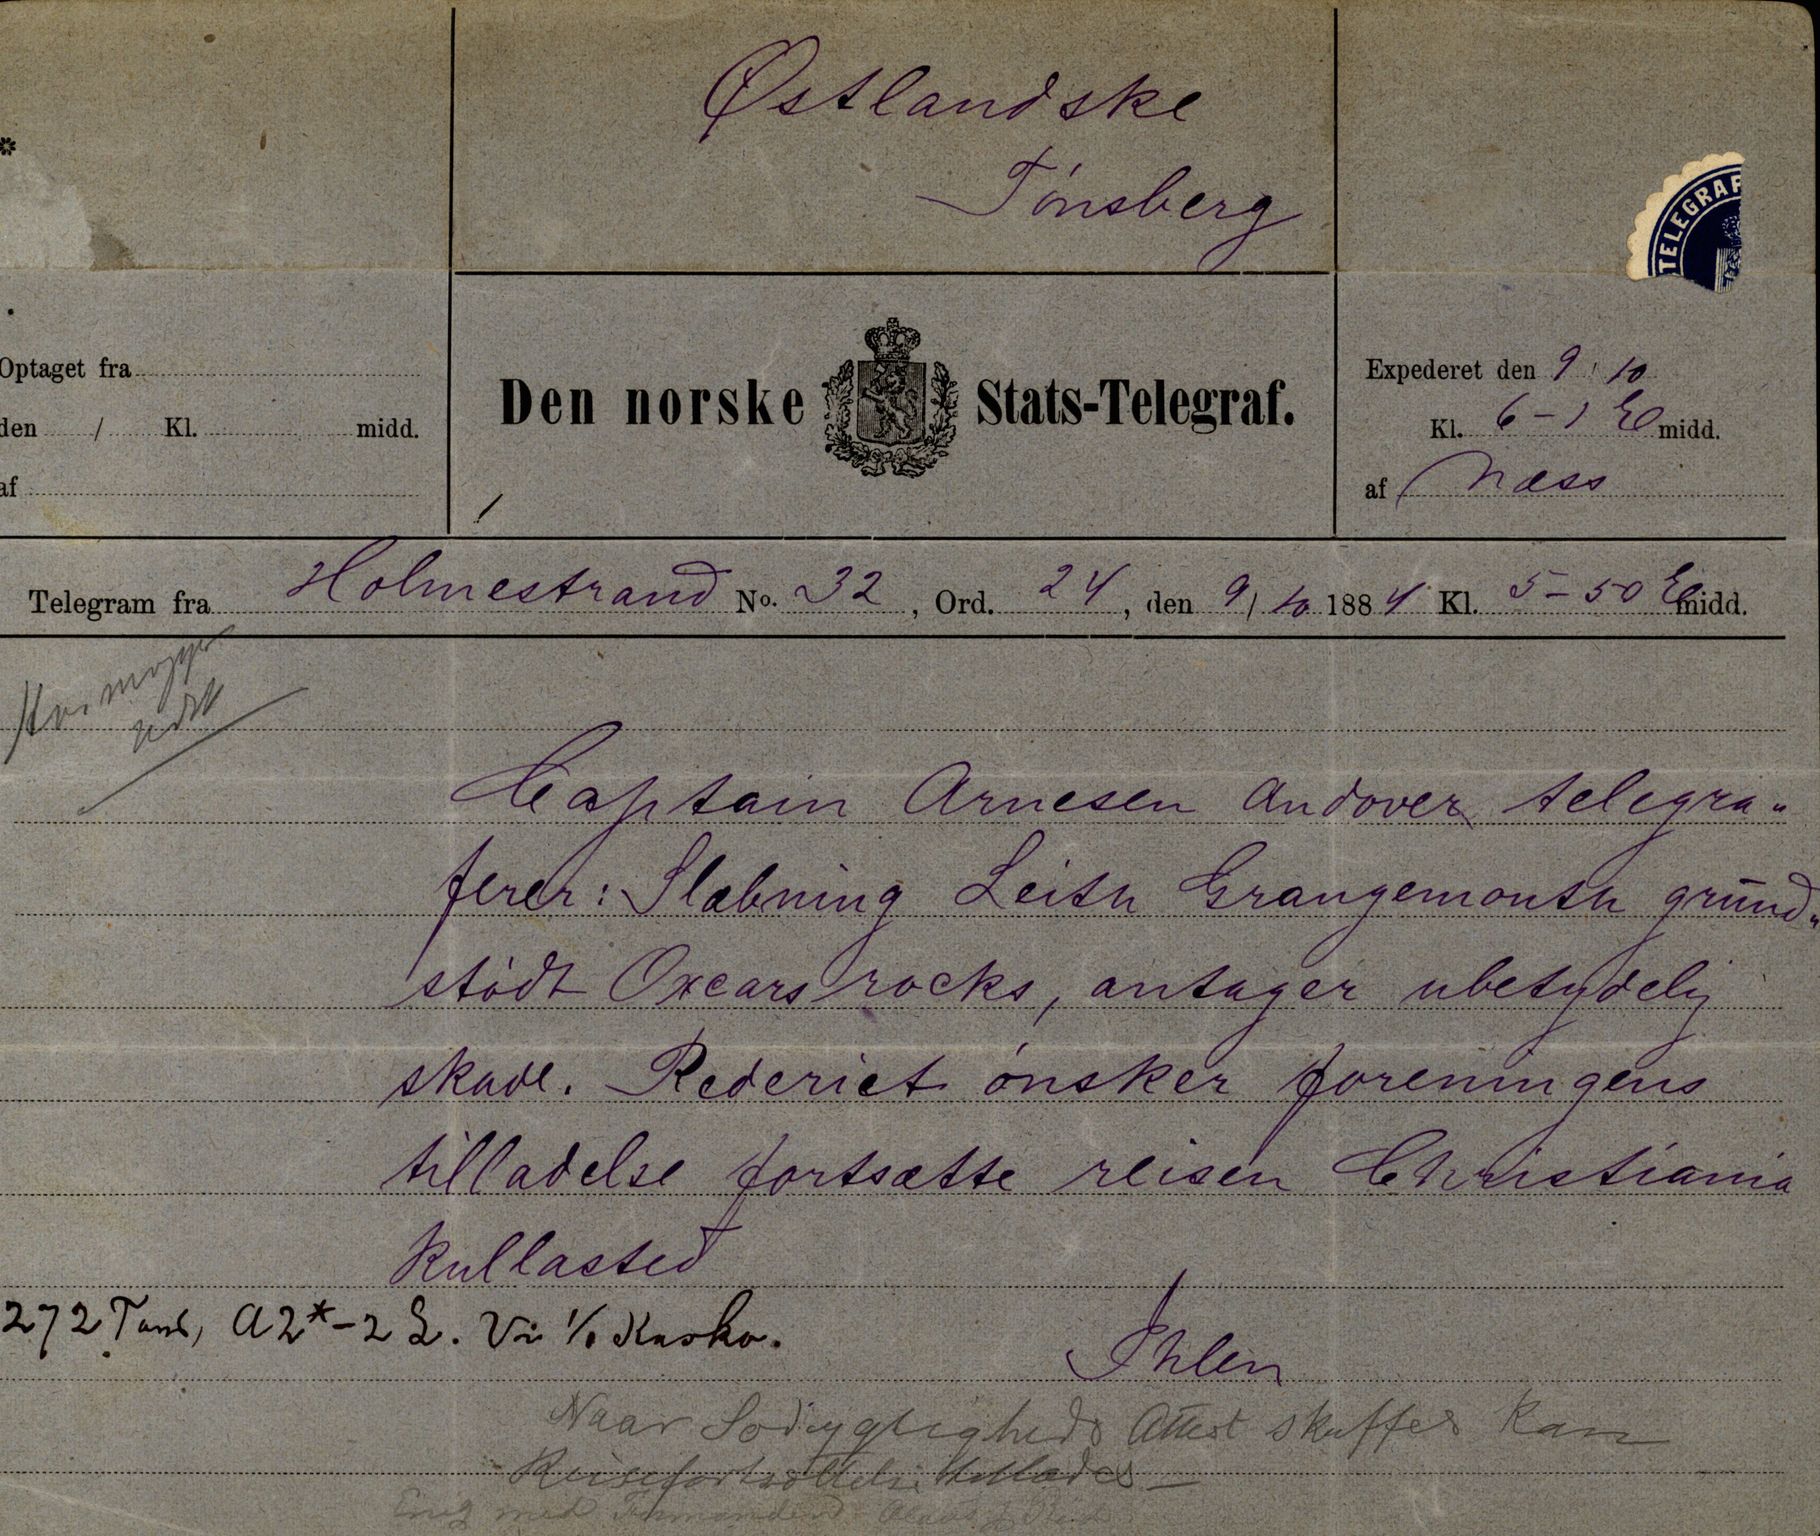 Østlandske
Tønsberg
TELEGRAF
Optaget fra
den / Kl. midd.
af
Den norske Stats-Telegraf.
Expederet den 9/10
Kl. 6-1 E midd.
af Næss
Telegram fra Holmestrand No. 32, Ord. 24, den 9/10 1884 Kl. 5-50 E midd.
Captain Arnesen Andover telegra„
ferer: Slæbning Leith Grangemouth grund„
stødt Oxcars rocks, antager ubetydelig
skade. Rederiet ønsker foreningens
tilladelse fortsætte reisen Christiania
kullasted
272 Tons, A2*-2 L. Vi 1/1 Kasko.
Ihlen
Naar Sødygtigheds Attest skaffes kan
Reisefortsættelse tillades
Enig med Formanden